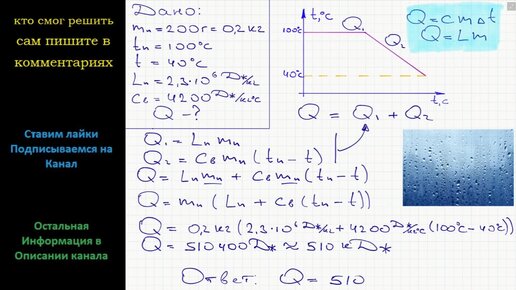 кто смог решить
сам пишите в
комментариях
Ставим лайки
Подписываемся на
Канал
Остальная
Информация в
Описании канала
Дано:
mп = 200г = 0,2 кг
tп = 100°C
t = 40°C
Lп = 2,3·10⁶ Дж/кг
Cв = 4200 Дж/кг°C
Q – ?
t, °C
100°C
40°C
Q₁
Q₂
t, c
Q = cmΔt
Q = Lm
Q = Q₁ + Q₂
Q₁ = Lп mп
Q₂ = Cв mп (tп – t)
Q = Lп mп + Cв mп (tп – t)
Q = mп (Lп + Cв (tп – t))
Q = 0,2 кг (2,3·10⁶ Дж/кг + 4200 Дж/кг°C (100°C – 40°C))
Q = 510400 Дж ≈ 510 кДж
Ответ: Q = 510